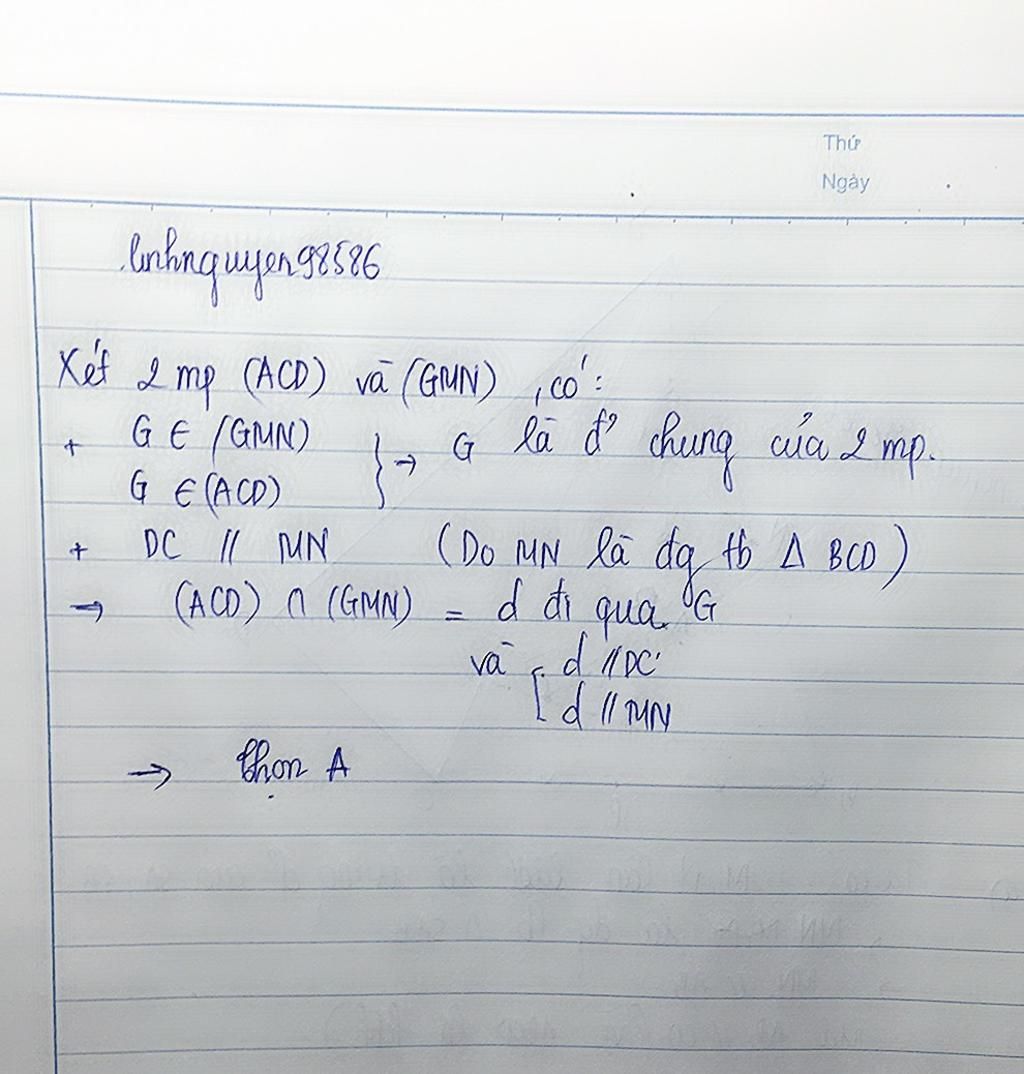 Thứ
Ngày
linhnguyen98586
Xét 2 mp (ACD) và (GMN), có:
+ G ∈ (GMN)
G ∈ (ACD) } → G là đ' chung của 2 mp.
+ DC // MN (Do MN là đg tb Δ BCD)
→ (ACD) ∩ (GMN) = d đi qua G
và [ d // DC
d // MN
→ Chọn A